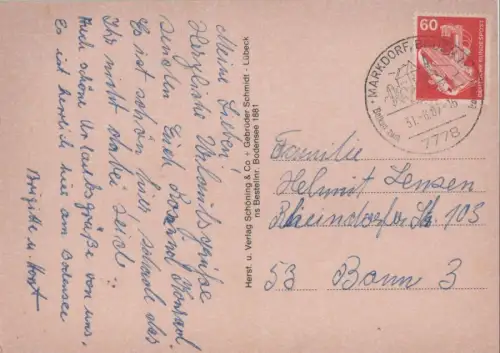 Meine Lieben!
Herzliche Urlaubsgrüße
senden Euch Konrad
Es ist schön hier, schade das
Ihr nicht dabei seid.
Auch schöne Urlaubsgrüße von uns,
Es ist herrlich hier am Bodensee
Brigitte u. Horst
Herst. u. Verlag Schöning & Co + Gebrüder Schmidt - Lübeck
ns Bestellnr. Bodensee 1881
60
DEUTSCHE BUNDESPOST
MARKDORF,
7778
Familie
Helmut Jensen
Rheindorfer Str. 103
53 Bonn 3